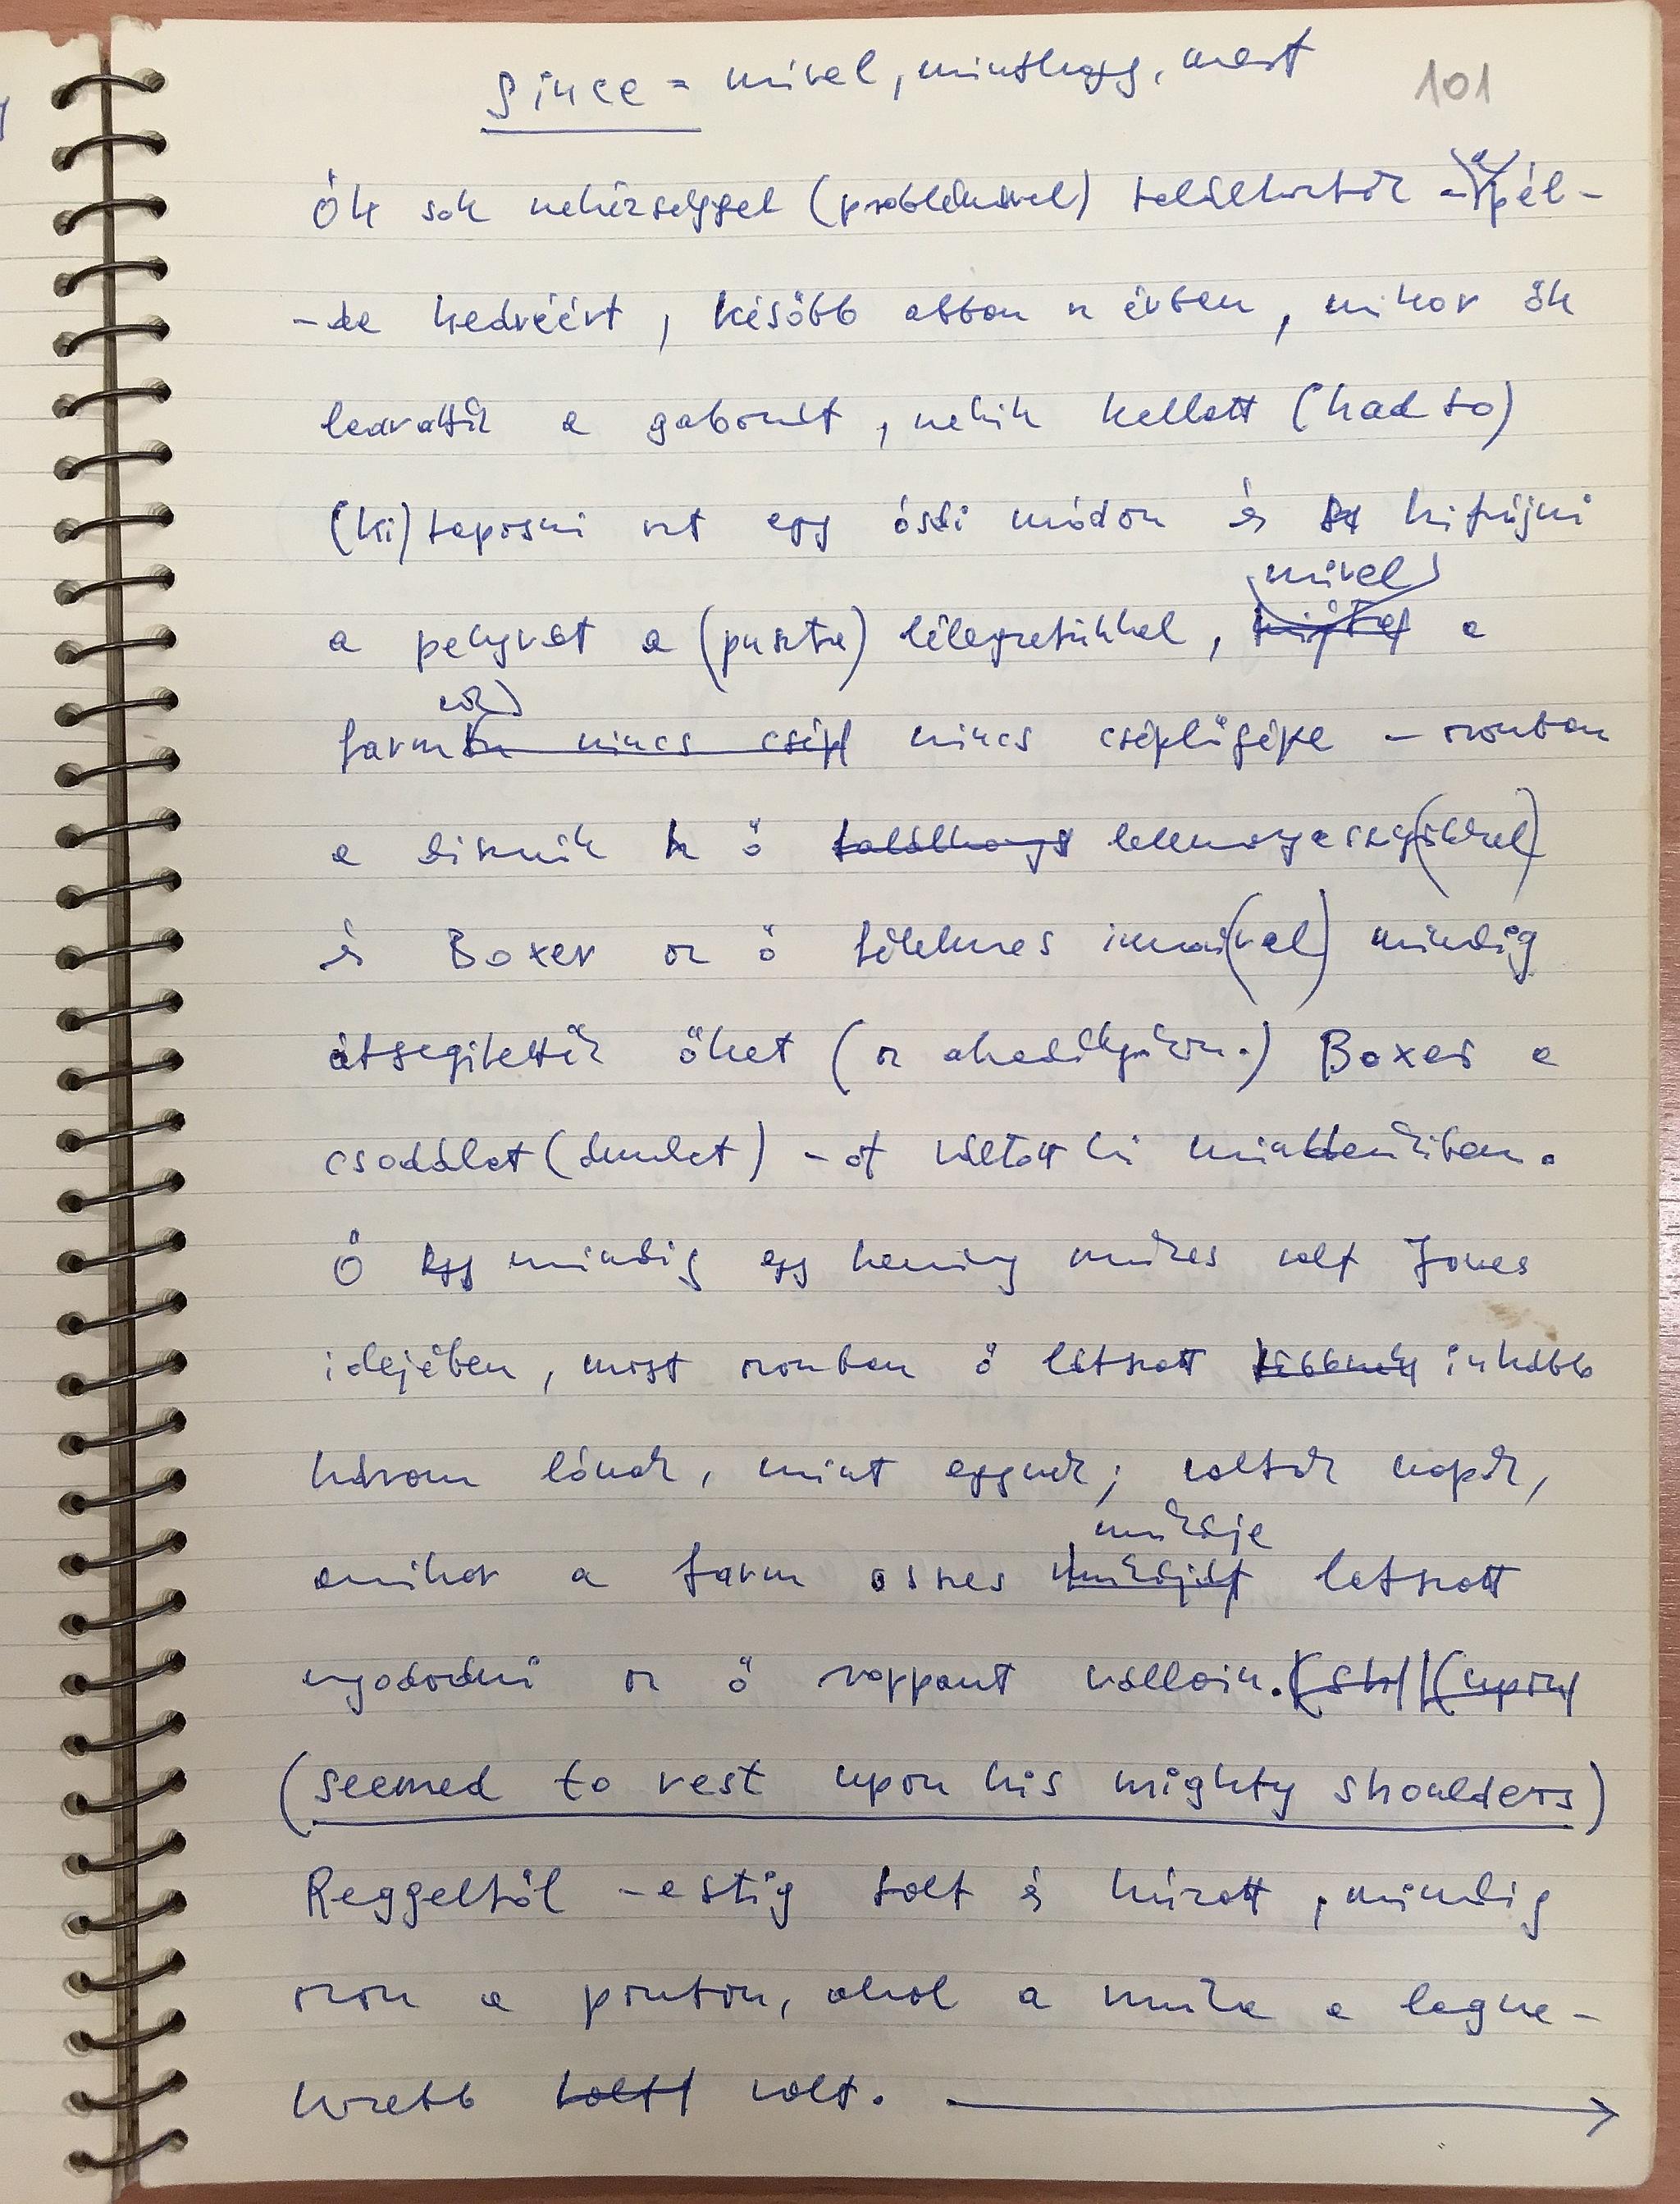 Since = mivel, minthogy, mert
101
Ők sok nehézséggel (problémával) találkoztak - pél-
-da kedvéért, később abban az évben, mikor ők
learatták a gabonát, nekik kellett (had to)
(ki)taposni azt egy ősdi módon és kifújni
mivel
a pelyvát a (puszta) lélegzetükkel, a
farm nincs cséplőgépe - azonban
a disznók az ő leleményességük(kel)
és Boxer az ő félelmes izmai(val) mindig
átsegítették őket (az akadályokon.) Boxer a
csodálat(ámulat) -ot váltott ki mindenkiben.
Ő mindig egy kemény munkás volt Jones
idejében, most azonban ő látszott inkább
három lónak, mint egynek; voltak napok,
munkája
amikor a farm összes látszott
nyugodni az ő roppant vállain.
(seemed to rest upon his mighty shoulders)
Reggeltől -estig tolt és húzott, mindig
azon a ponton, ahol a munka a legne-
hezebb volt.